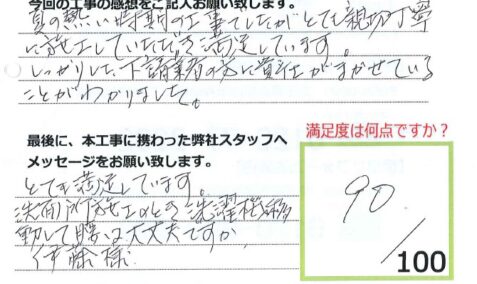 今回の工事の感想をご記入お願い致します。
夏の熱い時期の工事でしたがとても親切丁寧
に施工していただき満足しています。
しっかりした下請業者の方に貴社がまかせている
ことがわかりました。
最後に、本工事に携わった弊社スタッフへ
メッセージをお願い致します。
満足度は何点ですか?
とても満足しています。
洗面所施工のとき洗濯機移
動して腰は大丈夫ですか
伊藤様
90
/100